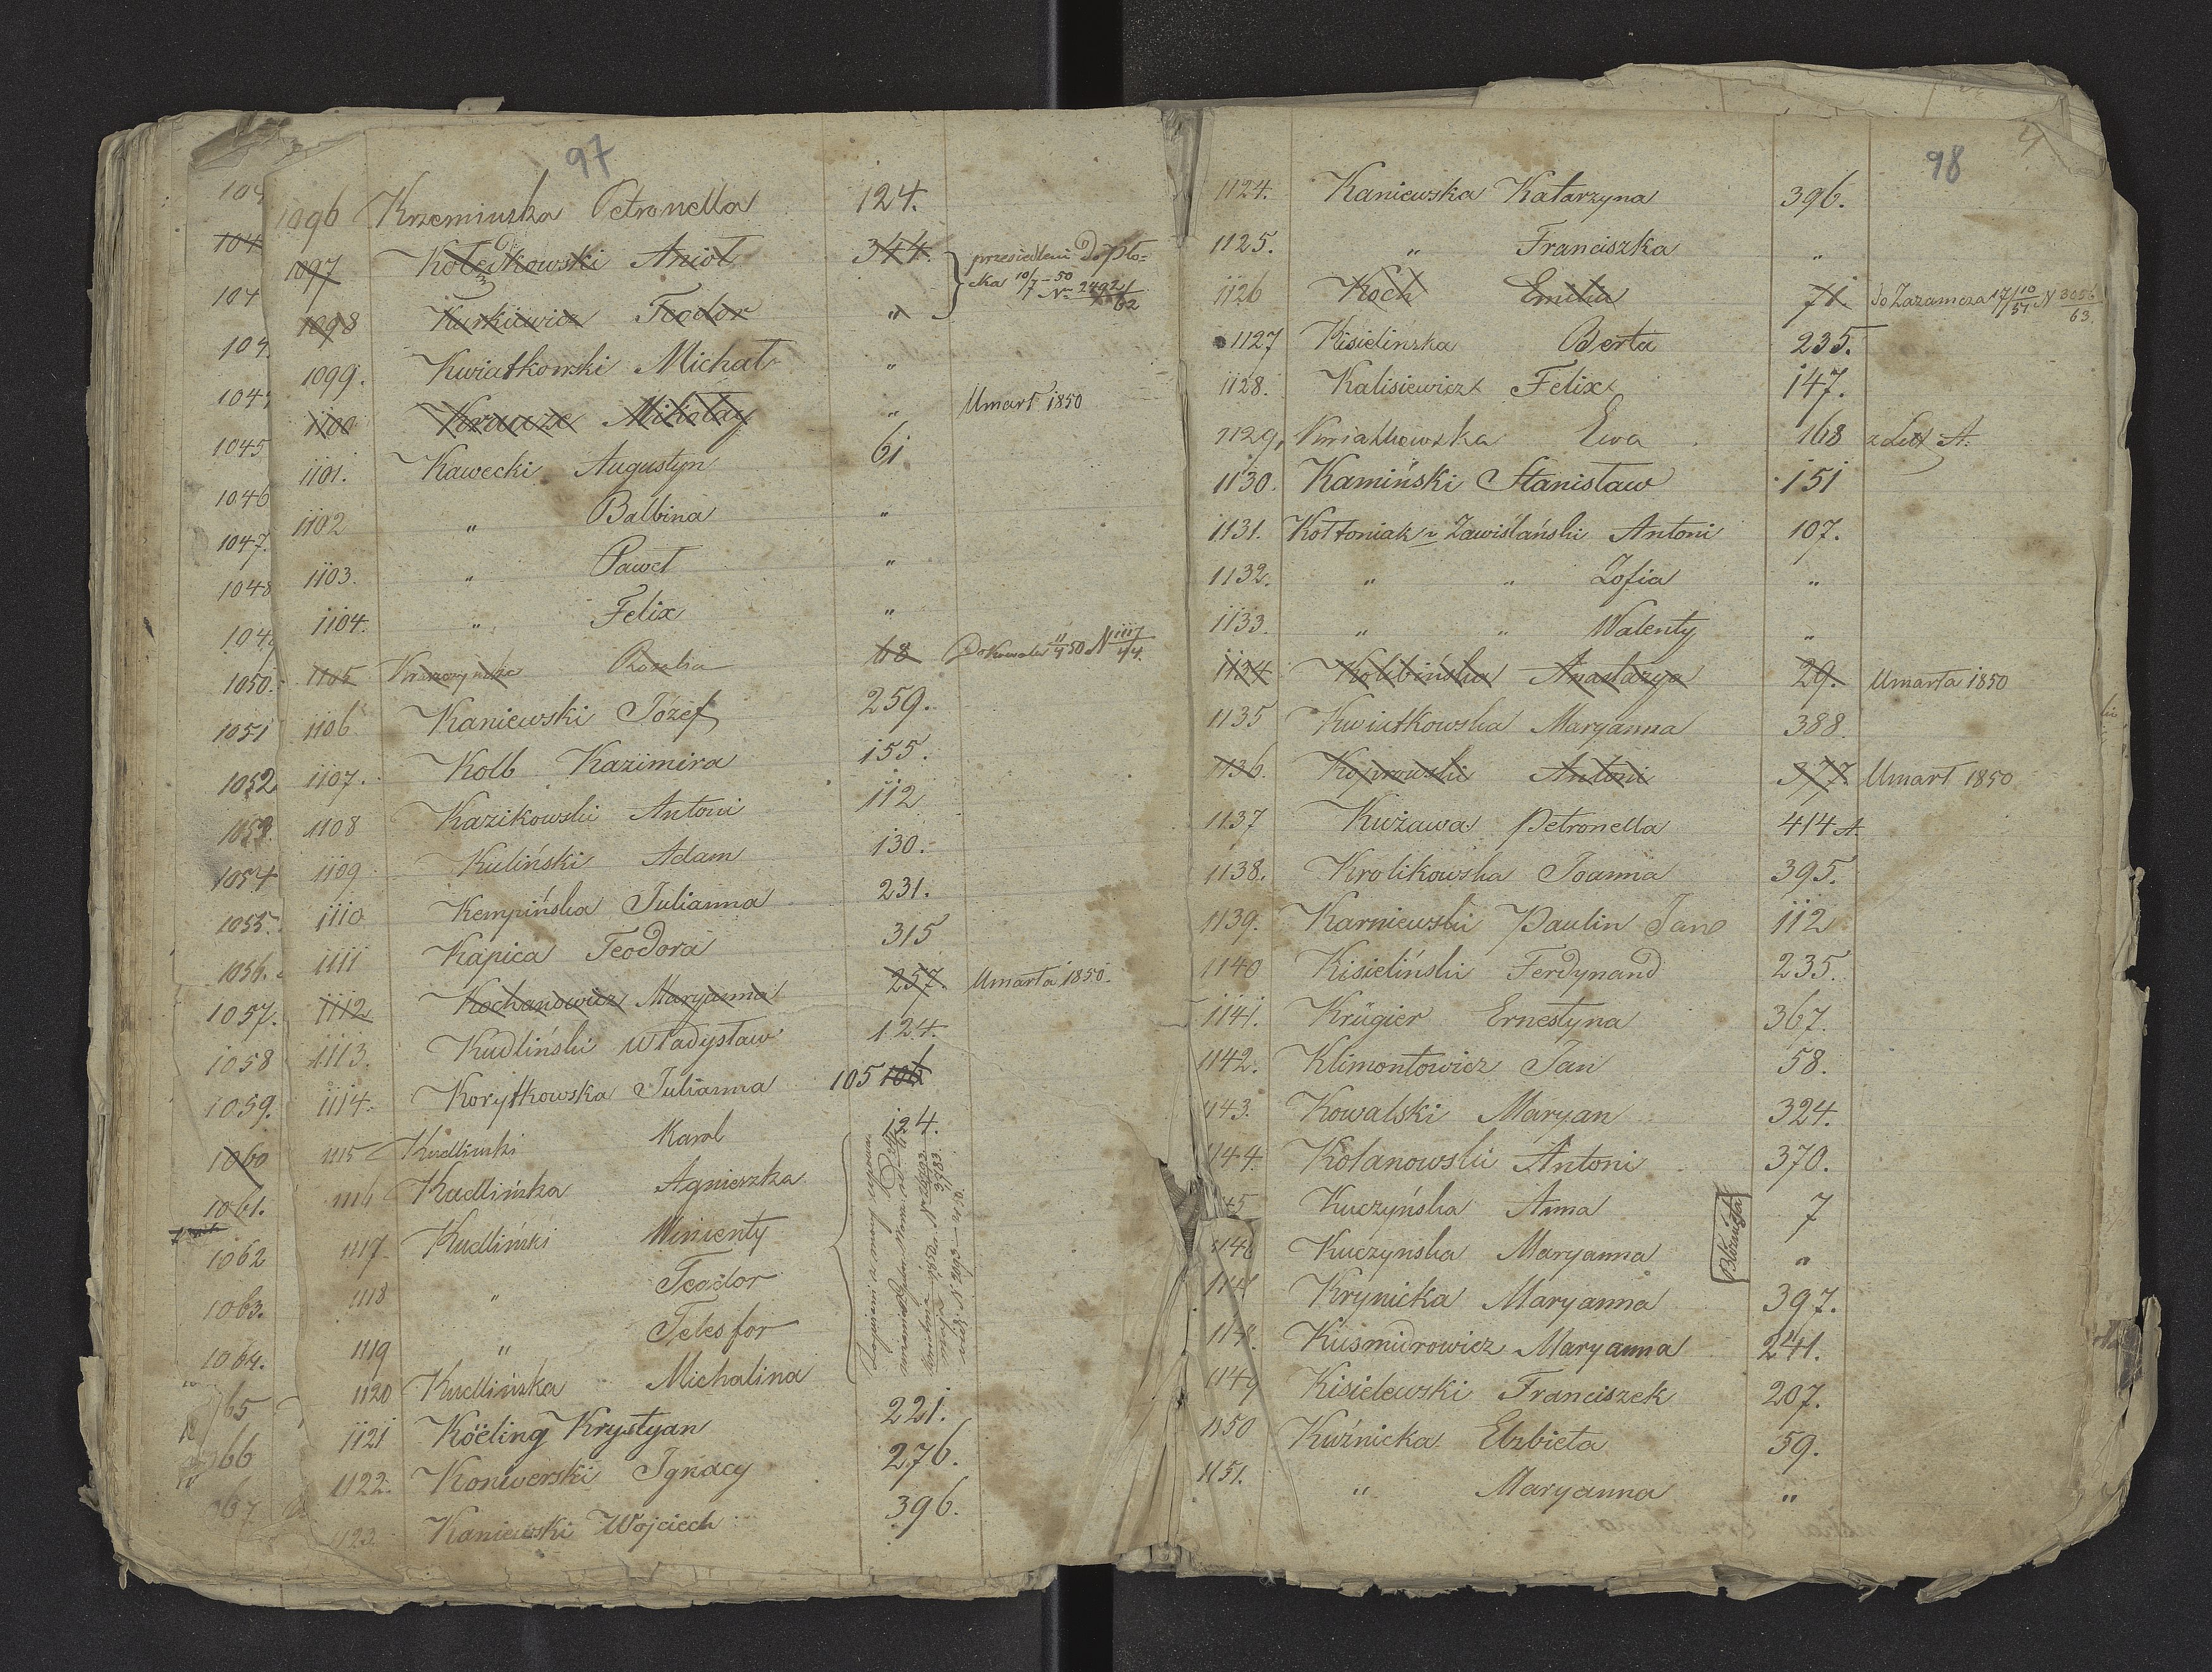 97
1096 Krzeminska Petronella 124.
1097 Kołeskowski Anioł 344. przesiedleni do Pło=
1098 Kurkiewicz Teodor " cka 10/7 - 50 Nr 2492/62
1099. Kwiatkowski Michał "
1100 Krauze Mikołay " Umarł 1850
1101. Kawecki Augustyn 61
1102 " Balbina "
1103. " Paweł "
1104. " Felix "
1105 Kruszczynska Rozalia 68 Do Kowala 11/4 50 N 1117/44.
1106 Kaniewski Józef 259.
1107. Kolb Kazimira 155.
1108 Kazikowski Antoni 112
1109 Kuliński Adam 130.
1110 Kempińska Julianna 231.
1111 Kapica Teodora 315
1112 Kochanowicz Maryanna 257. Umarła 1850.
1113. Kudliński Władysław 124.
1114. Korytkowska Julianna 105 106
1115 Kudlinski Karol 124.
1116 Kudlińska Agnieszka
1117 Kudliński Wincenty
1118 " Teodor
1119 " Telesfor
1120 Kudlińska Michalina
1121 Köeling Krystyan 221.
1122. Konwerski Ignacy 276.
1123. Kaniewski Wojciech 396.
104
104
104
104
1045
1046
1047.
1048
104
1050.
1051
1052
1053.
1054
1055.
1056.
1057.
1058
1059.
1060
1061.
1062
1063.
1064.
65
66
67
98
1124. Kaniewska Katarzyna 396.
1125. " Franciszka "
1126 Koch Emilia 71 do Zazamcza 17/10/51 N 3056/63.
1127 Kisielińska Berta 235.
1128. Kalisiewicz Felix 147.
1129. Kwiatkowska Ewa 168 z Lett A.
1130. Kamiński Stanisław 151
1131. Kołtoniak v Zawiślański Antoni 107.
1132. " " Zofia "
1133. " " Walenty "
1134 Kolbińska Anastazya 29. Umarła 1850
1135 Kwiatkowska Maryanna 388.
1136. Koprowski Antoni 377. Umarł 1850
1137 Kużawa Petronella 414 A.
1138. Krolikowska Joanna 395.
1139. Karniewski Paulin Jan 112
1140 Kisieliński Ferdynand 235.
1141. Krügier Ernestyna 367.
1142. Klimontowicz Jan 58.
1143. Kowalski Maryan 324.
1144. Kolanowski Antoni 370.
45 Kuczyńska Anna 7
1146 Kuczynska Maryanna " Bliźnięta
114 Krynicka Maryanna 397.
114. Kusmidrowicz Maryanna 241.
1149 Kisielewski Franciszek 207.
1150 Kuźnicka Elzbieta 59.
1151. " Maryanna "